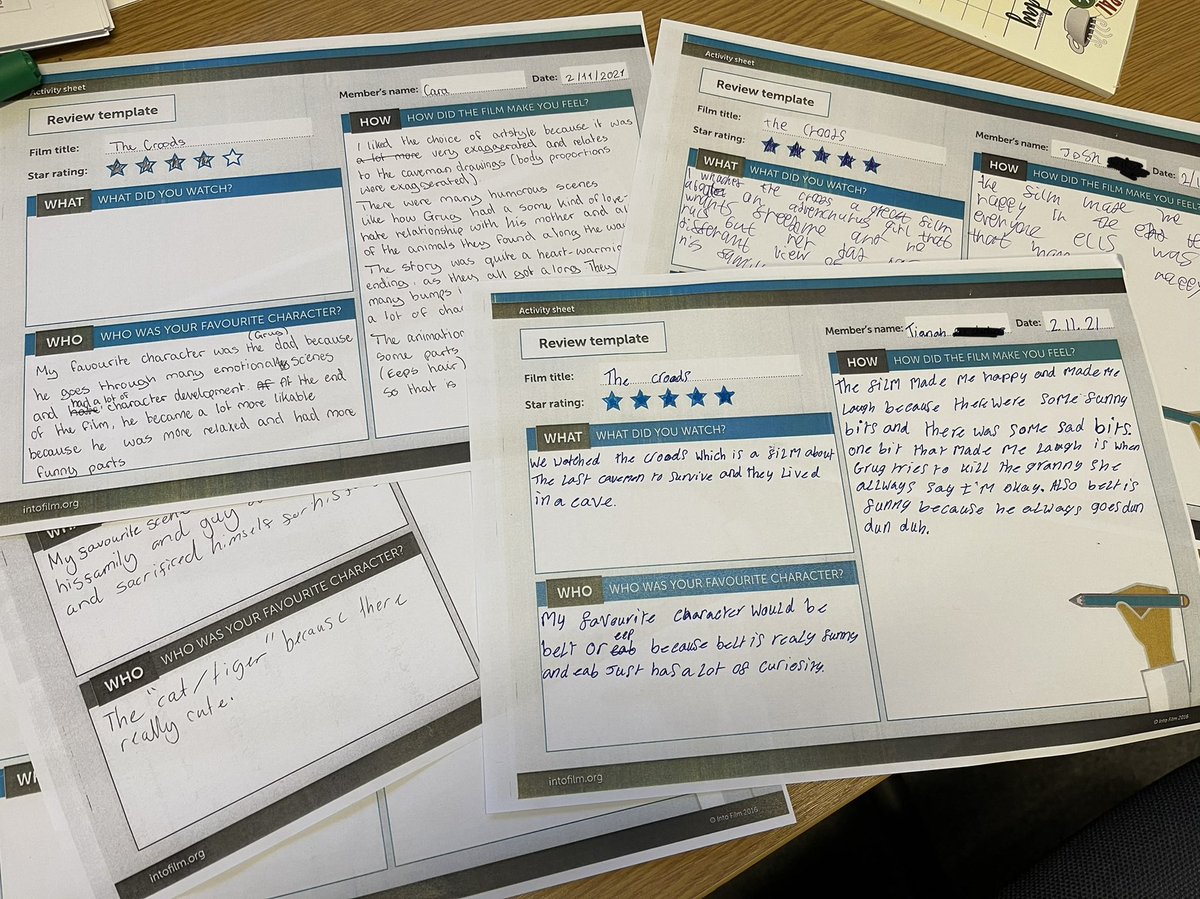 Activity sheet
Review template
Member's name: Cara
Date: 2/11/2021
Film title: The Croods
Star rating:
WHAT WHAT DID YOU WATCH?
WHO WHO WAS YOUR FAVOURITE CHARACTER?
(Grug)
My favourite character was the dad because
he goes through many emotional scenes
had a lot of
and have character development. At At the end
of the film, he became a lot more likable
because he was more relaxed and had more
funny parts
HOW HOW DID THE FILM MAKE YOU FEEL?
I liked the choice of artstyle because it was
a lot more very exaggerated and relates
to the caveman drawings (body proportions
were exaggerated)
There were many humorous scenes
like how Grug had a some kind of love-
hate relationship with his mother and
of the animals they found along the
The story was quite a heart-warming
ending, as they all got along. They
many bumps
a lot of
The animation
some parts
(Eeps hair)
so that is
intofilm.org
Activity sheet
Review template
Film title: the croods
Star rating:
Member's name: JOSH
Date: 2/1
WHAT WHAT DID YOU WATCH?
the croods a great film
an adventurus girl that
wants freedome and no
ruls but her dad
differant view of
his family
HOW HOW DID THE FILM MAKE YOU FEEL?
the film made me
happy in the end
everyone ells was
that happy
Activity sheet
Review template
Member's name: Tianah
Date: 2.11.21
Film title: The croods
Star rating:
WHAT WHAT DID YOU WATCH?
We watched the croods which is a film about
The last cavemen to survive and they lived
in a cave.
WHO WHO WAS YOUR FAVOURITE CHARACTER?
My favourite character would be
eep
belt or eab because belt is realy funny
and eab Just has a lot of curiosity.
HOW HOW DID THE FILM MAKE YOU FEEL?
The film made me happy and made me
laugh because there were some funny
bits and there was some sad bits.
one bit that made me laugh is when
Grug tries to kill the granny she
allways say I'm okay. Also belt is
funny because he always goes dun
dun duh.
intofilm.org
© Into Film 2016
My favourite scene
his family and guy
and sacrificed himself for his
WHO WHO WAS YOUR FAVOURITE CHARACTER?
The "cat/tiger" because there
really cute.
intofilm.org
© Into Film 2016